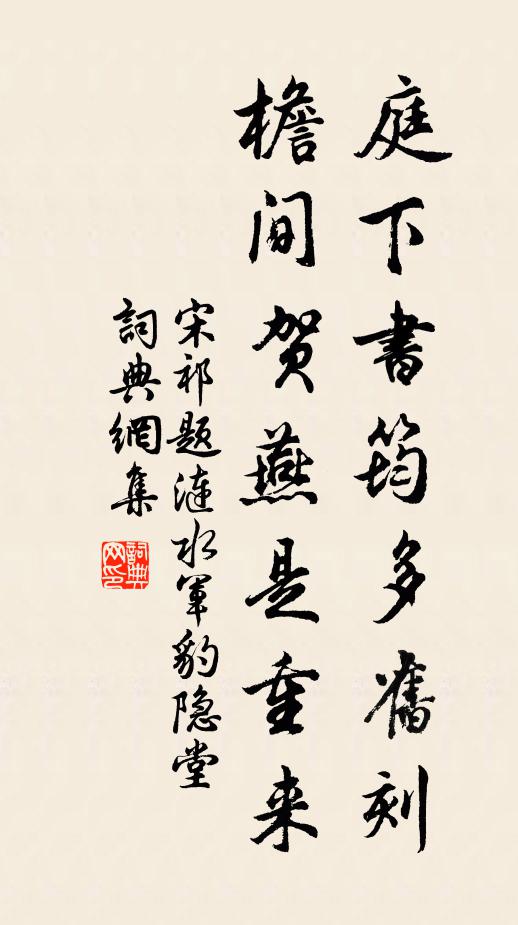 庭下書筠多舊刻
檐间贺燕是重来
宋祁题涟水军豹隐堂
詞典網集
詞典
网印